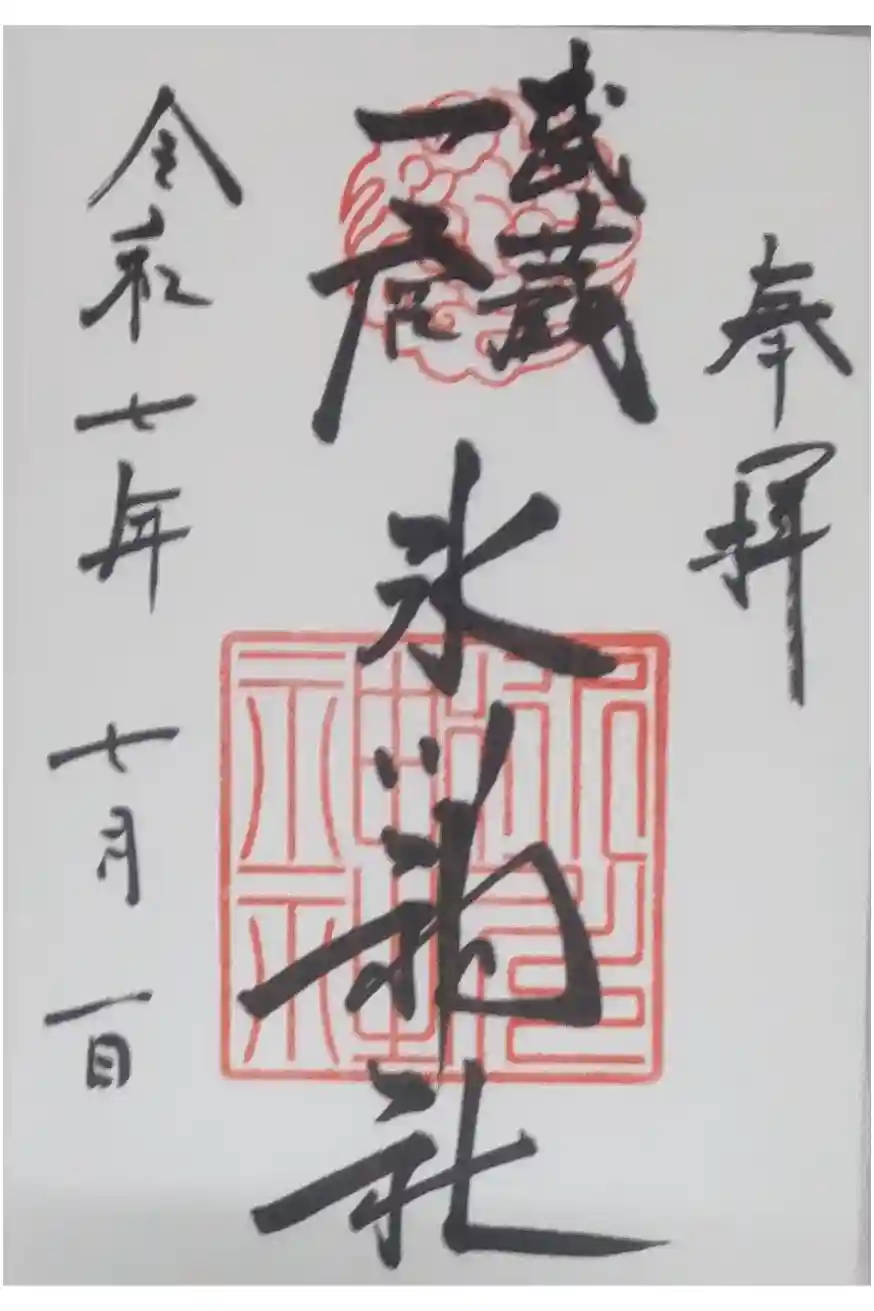 奉拝
武蔵
一宮
氷川神社
令和七年 七月 一日